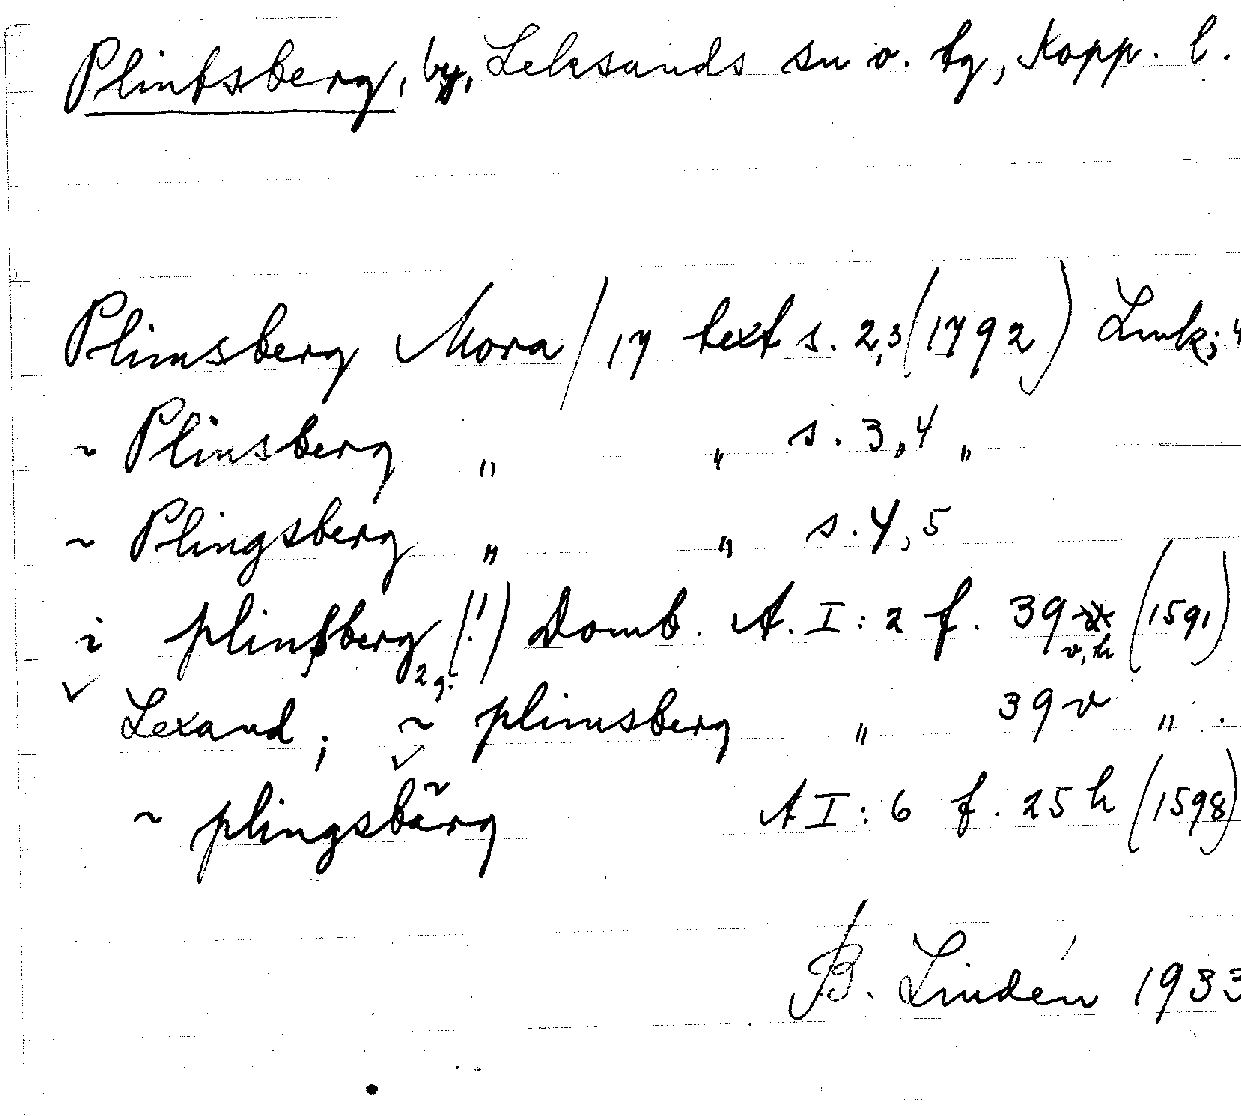 Plintsberg, by, Leksands sn o. tg, Kopp. l.
Plimsberg Mora / 17 text s. 2,3 (1792) Lmk; 4
~ Plinsberg " " s. 3,4 "
~ Plingsberg " " s. 4,5
i plinsberg 2 g. (!) Domb. A. I: 2 f. 39 v, h (1591)
Lexand; ~ plimsberg " 39 v " .
~ plingsbärg A I: 6 f. 25 h (1598)
B. Lindén 1933